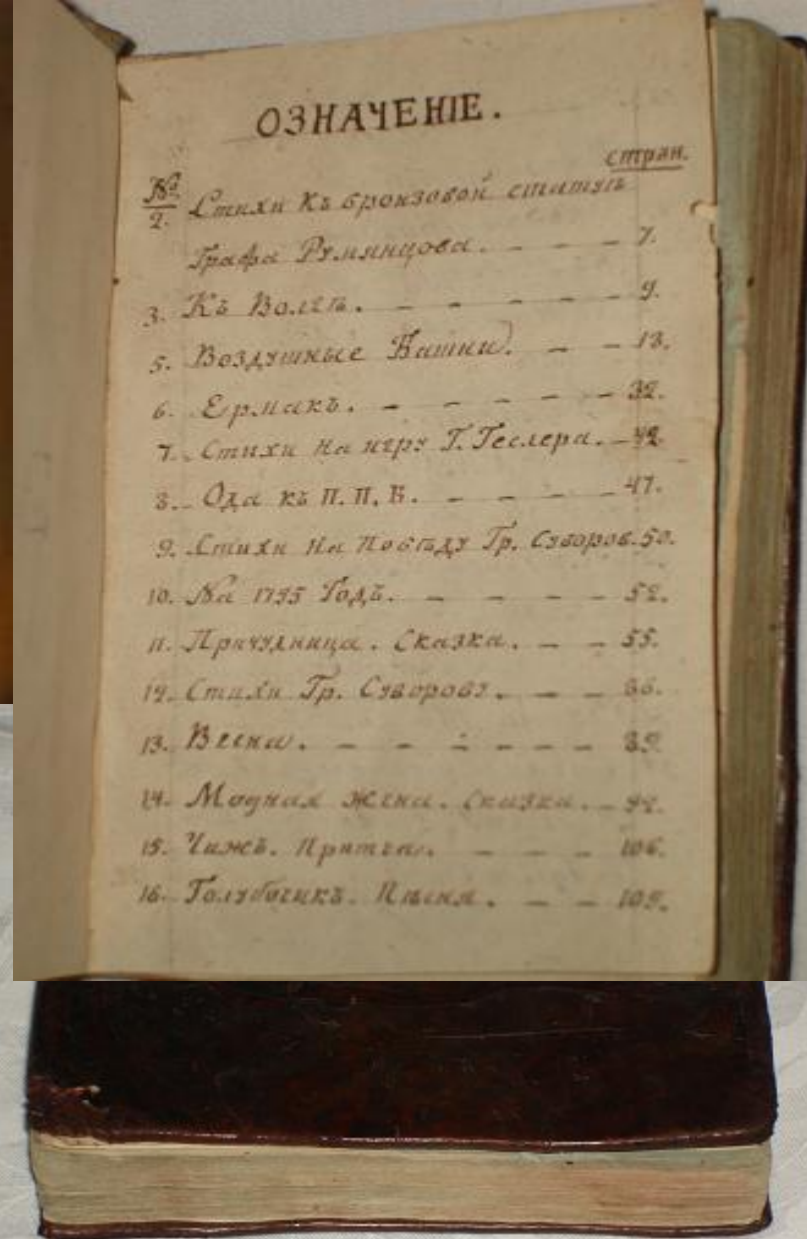 ОЗНАЧЕНІЕ.
стран.
№ 2. Стихи къ бронзовой статуѣ
Графа Румянцова. - - - 7.
3. Къ Волгѣ. - - - - - 9.
5. Воздушные Башни. - - 13.
6. Ермакъ. - - - - 32.
7. Стихи на игру Г. Геслера. - 42.
8. Ода къ П. П. Б. - - - 47.
9. Стихи на побѣду Гр. Суворов. 50.
10. На 1795 Годъ. - - - - 52.
11. Причудница. Сказка. - - 55.
12. Стихи Гр. Суворову. - - 86.
13. Весна. - - - - - - 89.
14. Модная жена. Сказка. - 92.
15. Чижъ. Притча. - - - 106.
16. Голубочикъ. Пѣсня. - - - 109.